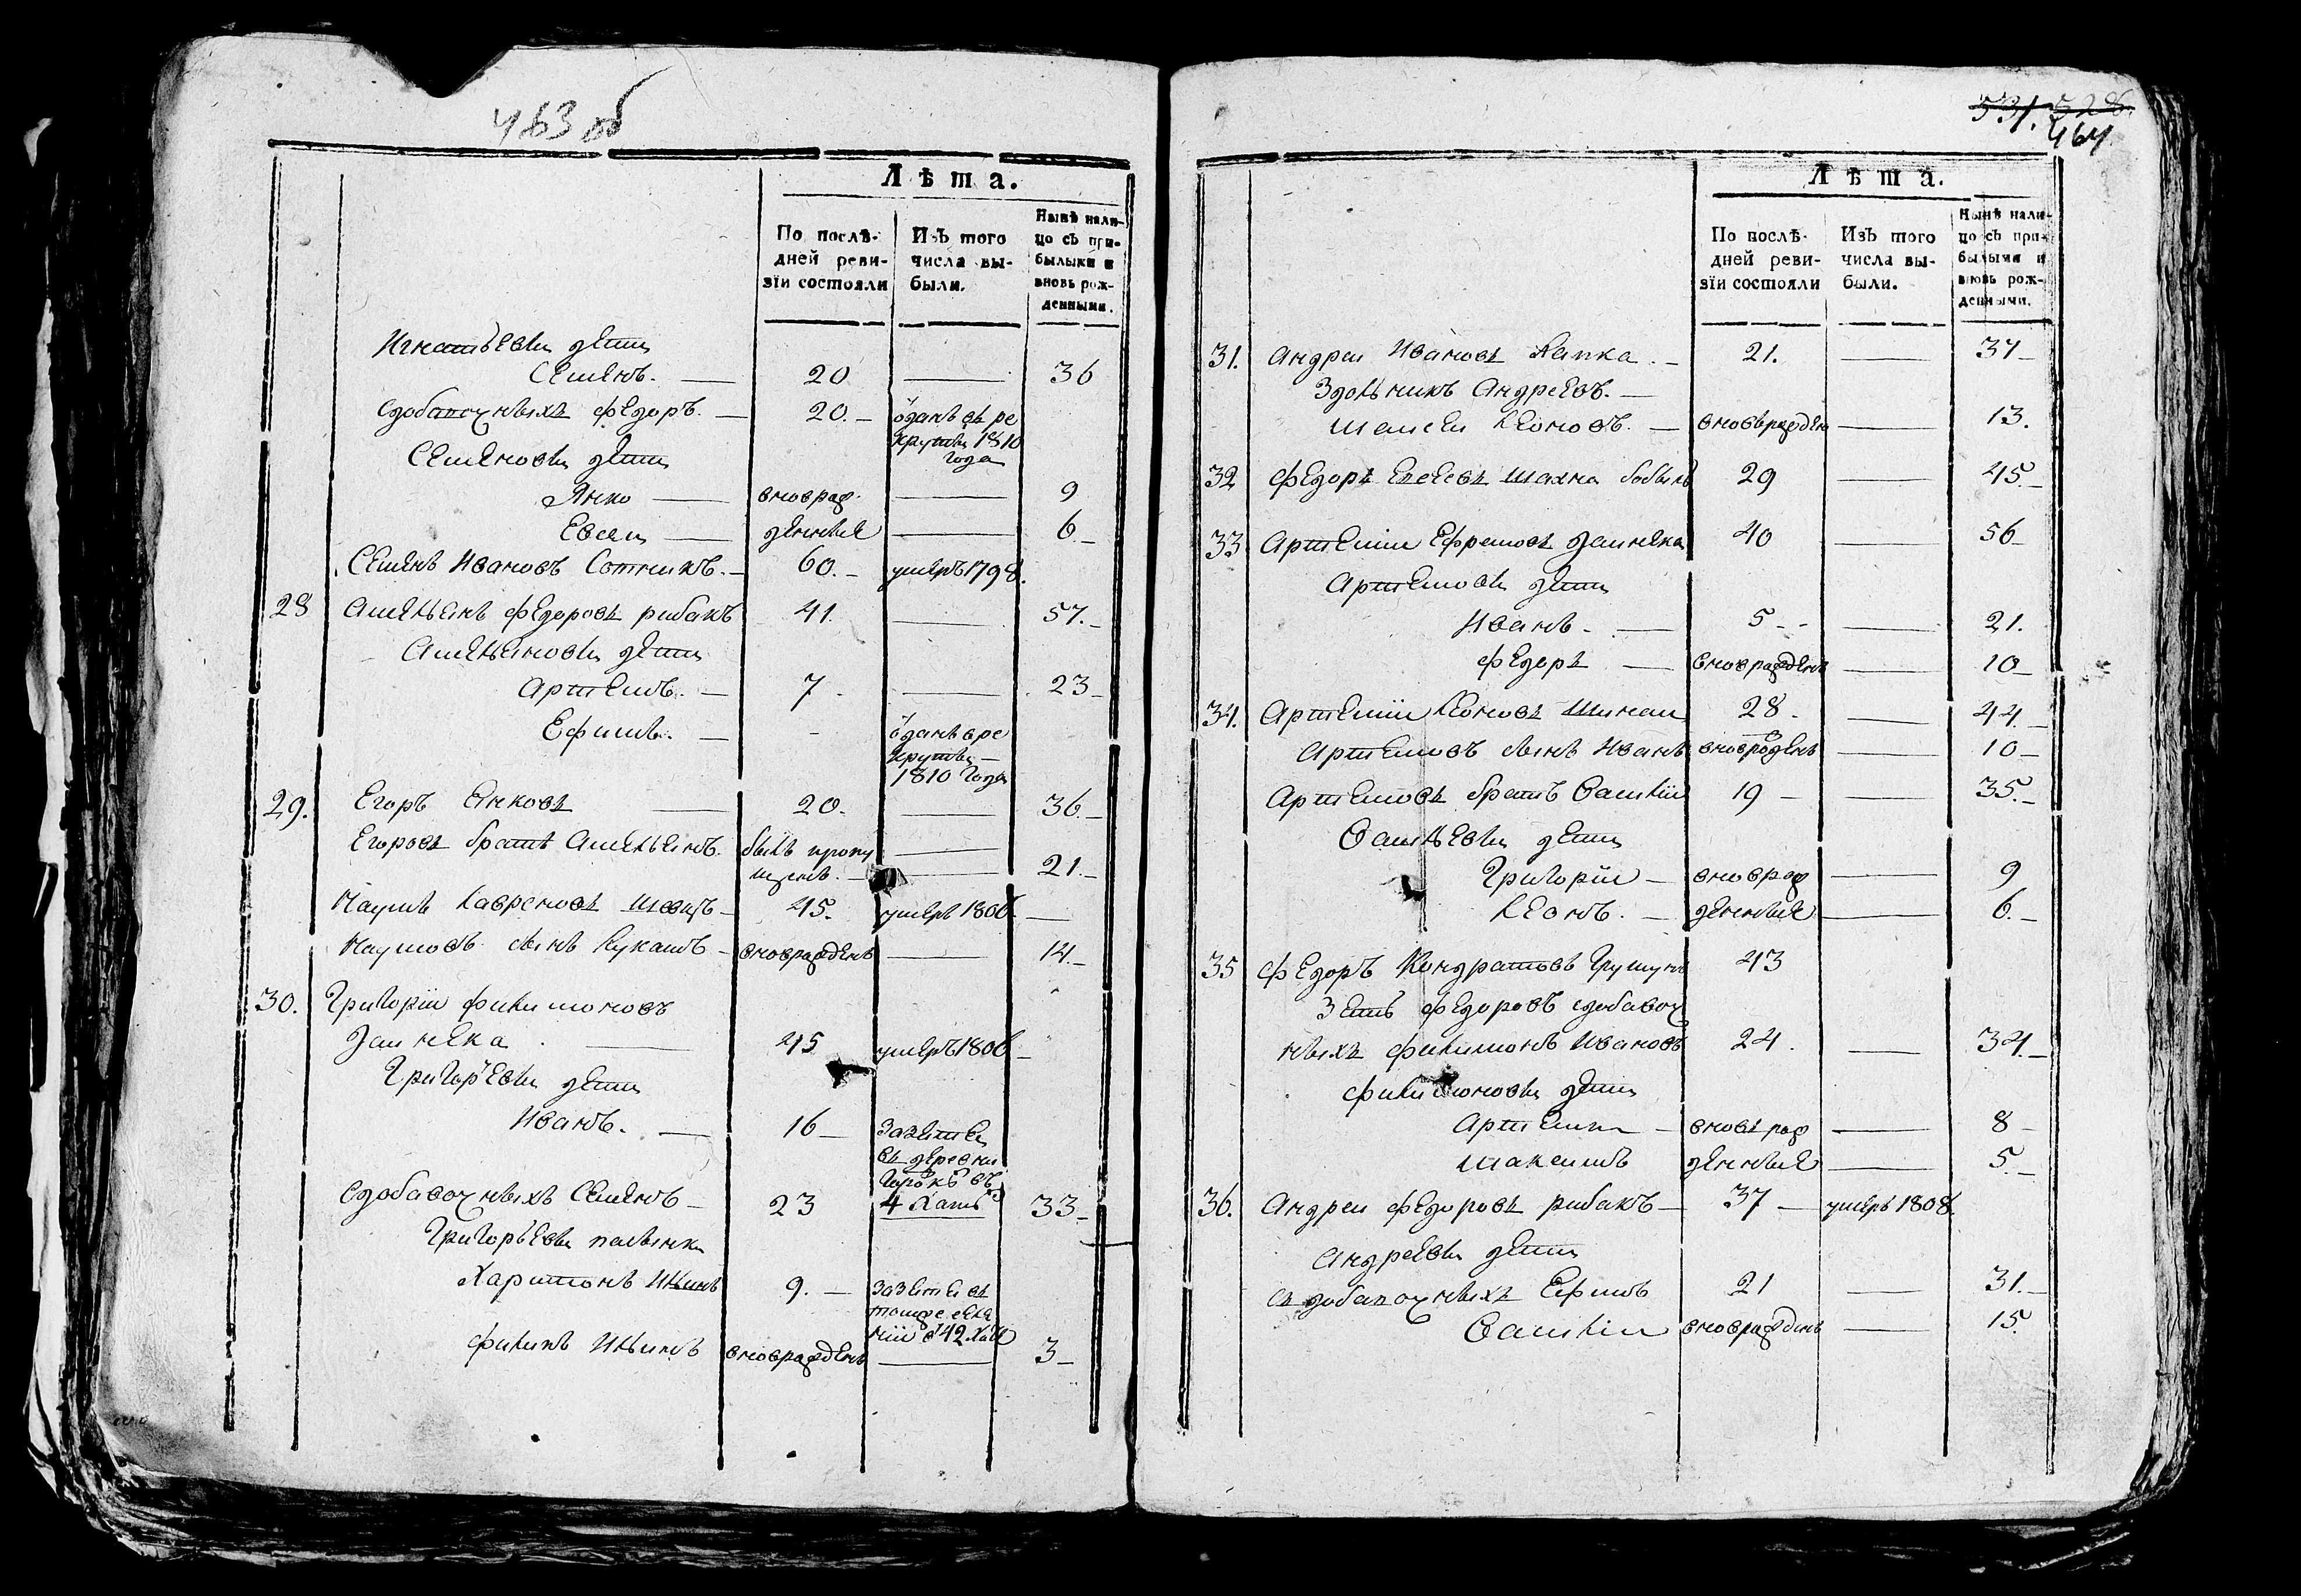 463 об
Лѣта.
По послѣдней ревизїи состояли
Изъ того числа выбыли.
Нынѣ налицо съ прибылыми и вновь рожденными.
Игнатьевы дети
Семенъ. — 20 — 36
Сдобавочныхъ Федоръ. — 20. — отданъ въ рекруты 1810 года
Семеновы дети
Янко — вновраж- — 9
Евсей — денные — 6
Семенъ Ивановъ Сотникъ. — 60. — умеръ 1798.
28 Емельянъ Федоровъ рибакъ 41. — 57.
Емельяновы дети
Артемъ. — 7 — 23
Ефимъ. — - отданъ в рекруты 1810 года
29. Егоръ Янковъ — 20. — 36.
Егоровъ братъ Емельянъ. былъ пропущенъ. — 21.
Наумъ Лавреновъ швецъ — 45. умеръ 1806. —
Наумовъ сынъ Лукашъ — вновражденъ — 14.
30. Григорїи Филимоновъ
Дайнека — 45 умеръ 1806 —
Григорьевы дети
Иванъ. — 16 — Зазятей въ деревни въ 4 хатѣ
Сдобавочныхъ Семенъ — 23 33
Григорьевы пасынки
Харитонъ Ильинъ 9. — Зазятей въ томже селенїи в 42 хатѣ
Филипъ Ильинъ вновражденъ — 3
531. 528.
464
Лѣта.
По послѣдней ревизїи состояли
Изъ того числа выбыли.
Нынѣ налицо съ прибылыми и вновь рожденными.
31. Андреи Ивановъ Лапка. — 21. — 37
Здольникъ Андреевъ. —
Леоновъ. — вновьражден — 13.
32 Федоръ Елесевъ бобыль 29 — 45.
33 Артемїи Ефремовъ Дайнека 40 — 56
Артемовы дети
Иванъ. — 5 — 21.
Федоръ — вновражденъ — 10
34. Артемїи Леоновъ 28. — 44.
Артемовъ сынъ Иванъ вновражденъ — 10
Артемовъ братъ Василїи 19 — 35.
Васильевы дети
Григорїи — вновраж — 9
Леонъ. — денные — 6.
35 Федоръ Кондратовъ 43
Зять Федоровъ сдобавоч
ныхъ Филимонъ Ивановъ 24. — 34.
Филимоновы дети
Артемии — вновь раж — 8
Максимъ денные — 5.
36. Андреи Федоровъ рибакъ — 37 — умеръ 1808.
Андреевы дети
съ добавочныхъ Ефимъ 21 — 31.
Василии вновражденъ — 15.